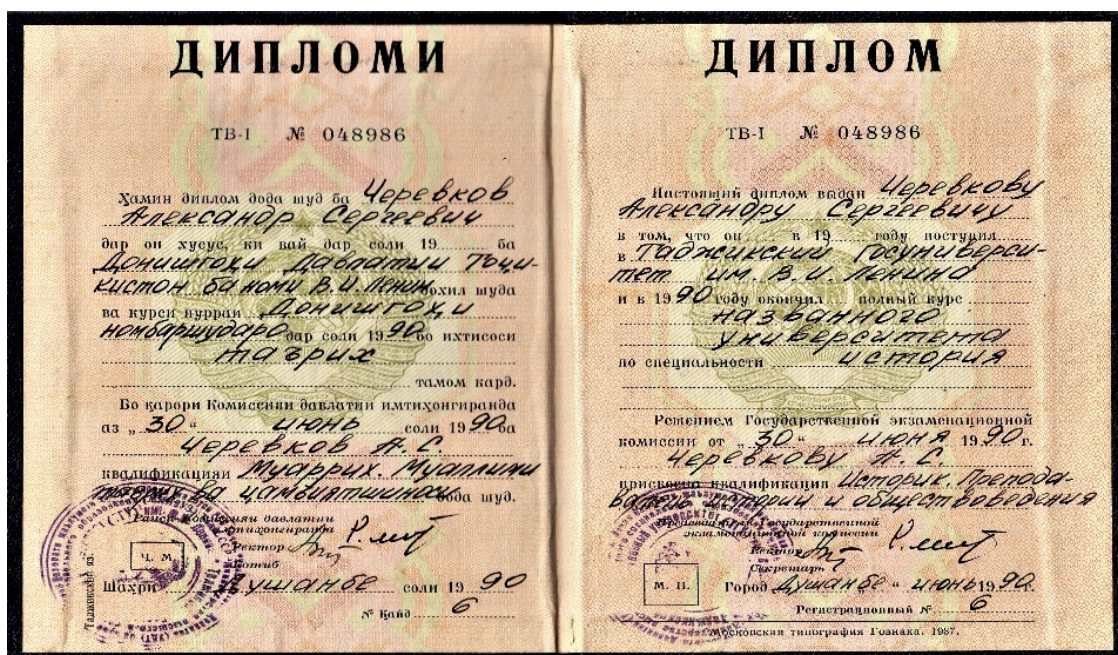 ДИПЛОМИ
ТВ-I № 048986
Ҳамин диплом дода шуд ба Черевков
Александр Сергеевич
дар он хусус, ки вай дар соли 19 ба
Донишгоҳи Давлатии Тоҷи-
кистон ба номи В.И. Ленин дохил шуда
ва курси пурраи Донишгоҳи
номбаршударо дар соли 1990 бо ихтисоси
таърих
тамом кард.
Бо қарори Комиссияи давлатии имтиҳонгиранда
аз „30“ июнь соли 1990 ба
Черевков А.С.
квалификацияи Муаррих. Муаллими
таърих ва ҷамъиятшиносӣ дода шуд.
Раиси Комиссияи давлатии
имтиҳонгиранда
Ректор
Котиб
Ч. М.
Шаҳри Душанбе соли 1990
№ Қайд 6
Таджикский яз.
ДИПЛОМ
ТВ-I № 048986
Настоящий диплом выдан Черевкову
Александру Сергеевичу
в том, что он в 19 году поступил
в Таджикский госуниверси-
тет им. В.И. Ленина
и в 1990 году окончил полный курс
названного
университета
по специальности история
Решением Государственной экзаменационной
комиссии от „30“ июня 1990 г.
Черевкову А.С.
присвоена квалификация Историк. Препода-
ватель истории и обществоведения
Председатель Государственной
экзаменационной комиссии
Ректор
Секретарь
М. П.
Город Душанбе " июнь 1990г.
Регистрационный № 6
Московская типография Гознака. 1987.